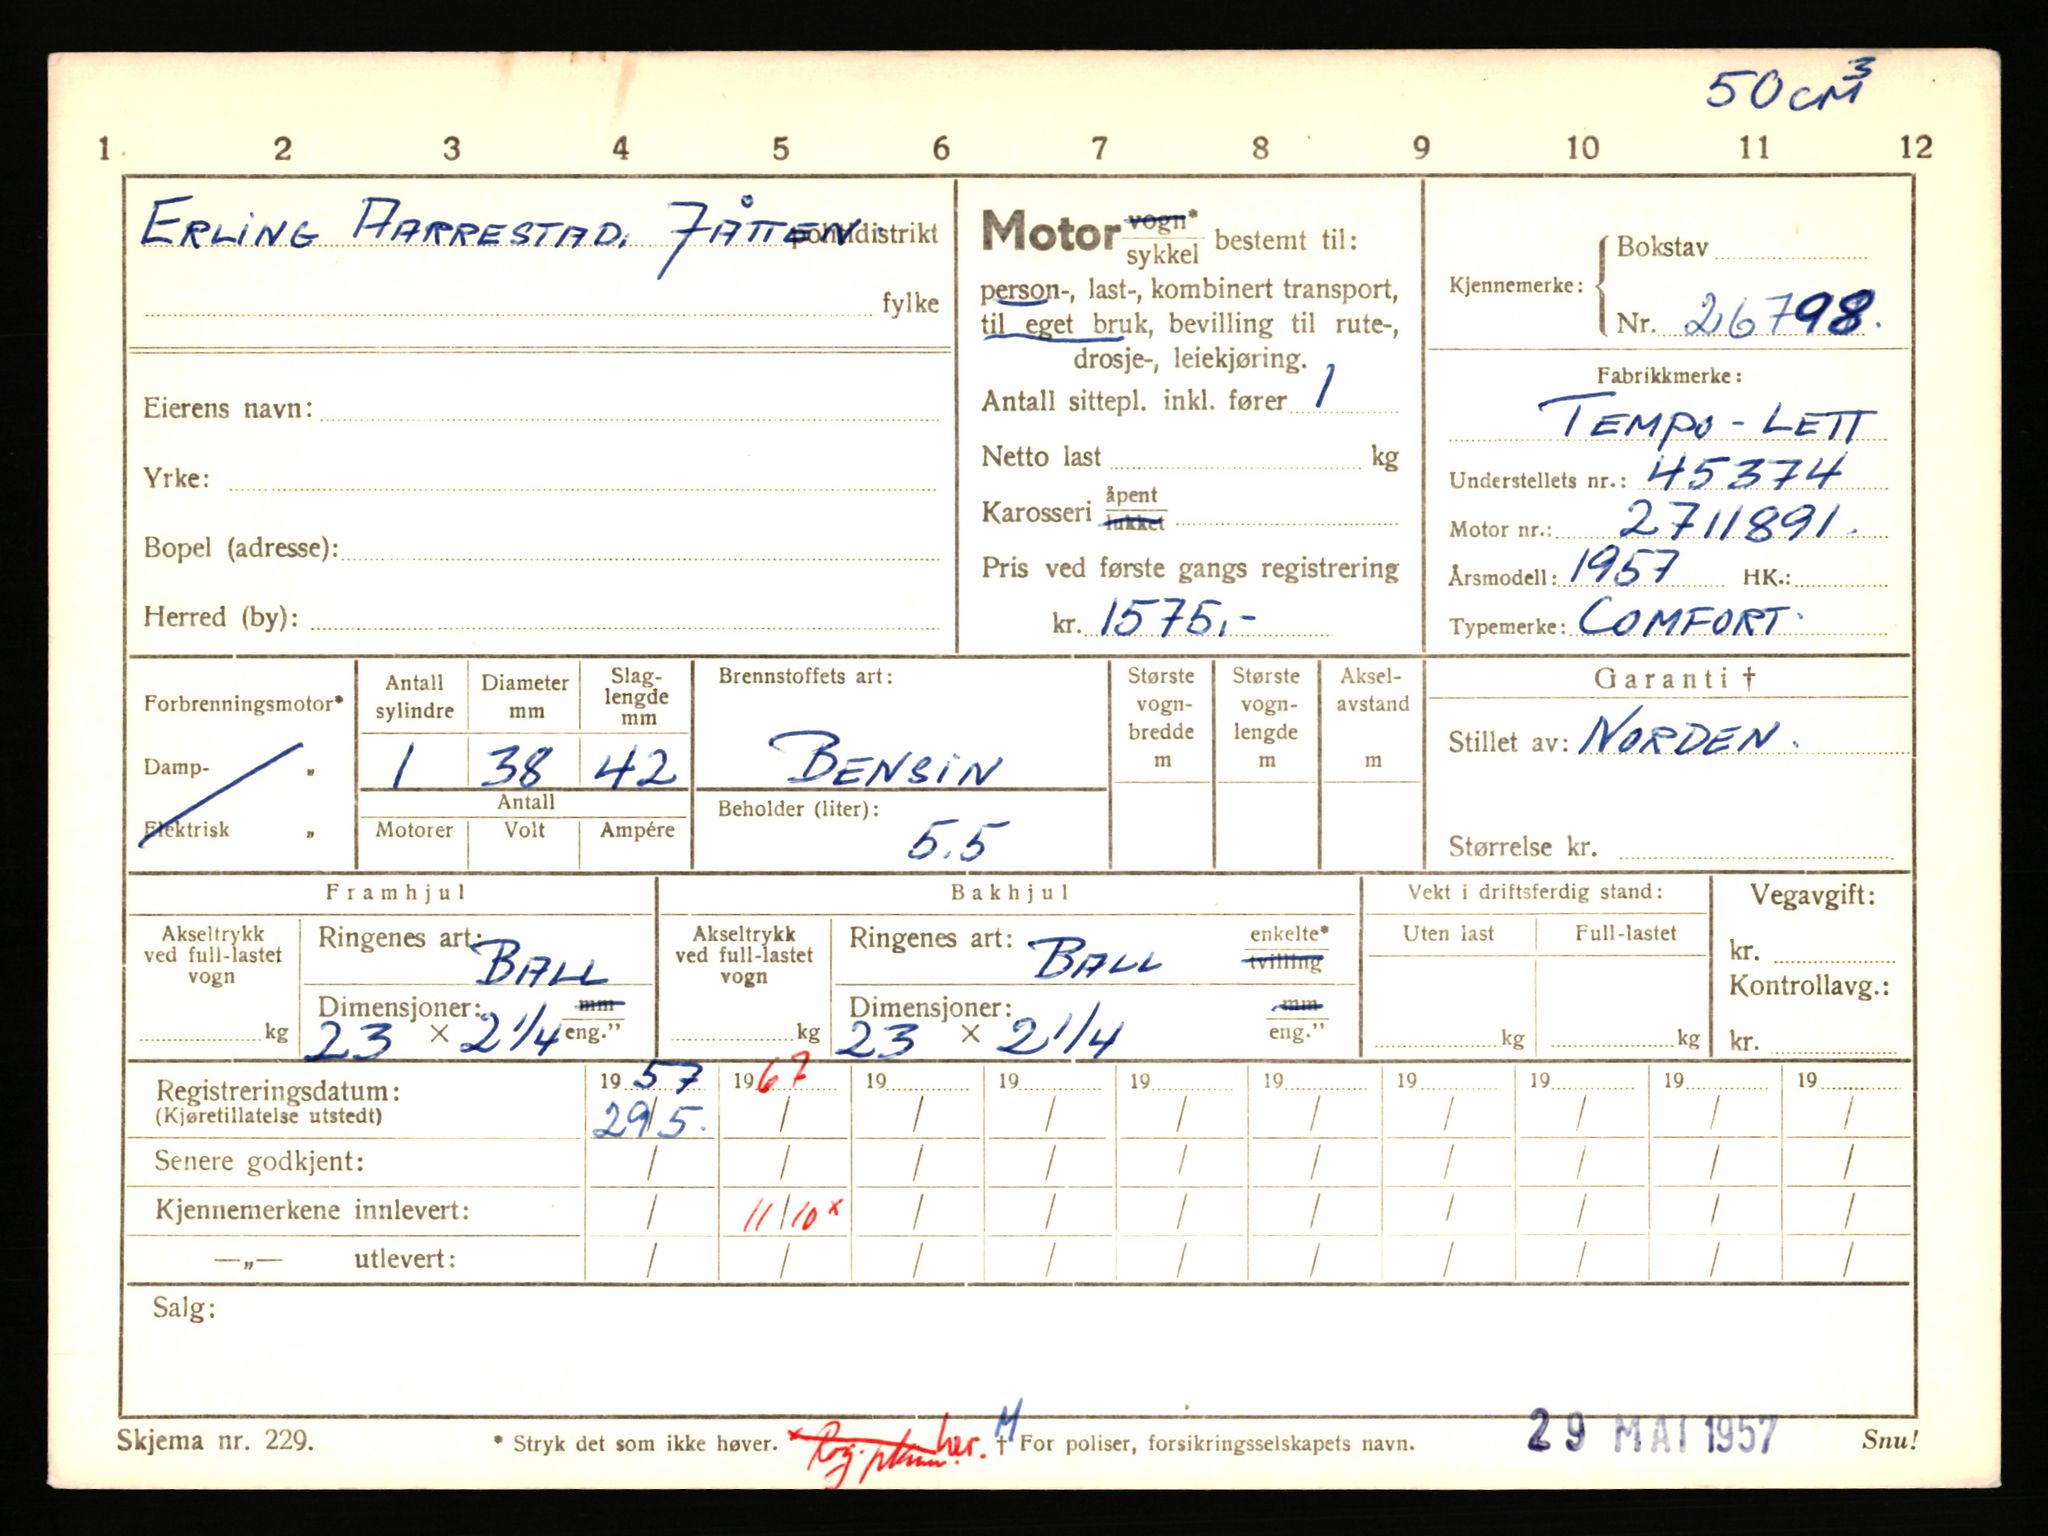 50 cm³
1 2 3 4 5 6 7 8 9 10 11 12
ERLING AARRESTAD, JÅTTEN. politidistrikt
fylke
Eierens navn:
Yrke:
Bopel (adresse):
Herred (by):
Motor vogn* / sykkel bestemt til:
person-, last-, kombinert transport,
til eget bruk, bevilling til rute-,
drosje-, leiekjøring.
Antall sittepl. inkl. fører 1
Netto last kg
Karosseri åpent / lukket
Pris ved første gangs registrering
kr. 1575,-
Kjennemerke: Bokstav
Nr. 26798.
Fabrikkmerke:
TEMPO - LETT
Understellets nr.: 45374
Motor nr.: 2711891.
Årsmodell: 1957 HK.:
Typemerke: COMFORT.
Forbrenningsmotor*
Damp- „
Elektrisk „
Antall sylindre Diameter mm Slag-lengde mm
1 38 42
Antall
Motorer Volt Ampére
Brennstoffets art:
BENSIN
Beholder (liter):
5.5
Største vogn-bredde m
Største vogn-lengde m
Aksel-avstand m
Garanti †
Stillet av: NORDEN.
Størrelse kr.
Framhjul
Akseltrykk ved full-lastet vogn
kg
Ringenes art: BALL
Dimensjoner: mm / eng."
23 × 2 1/4
Bakhjul
Akseltrykk ved full-lastet vogn
kg
Ringenes art: BALL enkelte* / tvilling
Dimensjoner: mm / eng."
23 × 2 1/4
Vekt i driftsferdig stand:
Uten last Full-lastet
kg kg
Vegavgift:
kr.
Kontrollavg.:
kr.
Registreringsdatum: 19 57 19 67 19 19 19 19 19 19 19 19
(Kjøretillatelse utstedt) 29/5. / / / / / / / / /
Senere godkjent: / / / / / / / / / /
Kjennemerkene innlevert: / 11/10 x / / / / / / / /
—„— utlevert: / / / / / / / / / /
Salg:
Skjema nr. 229. * Stryk det som ikke høver. x her. M † For poliser, forsikringsselskapets navn. 29 MAI 1957 Snu!